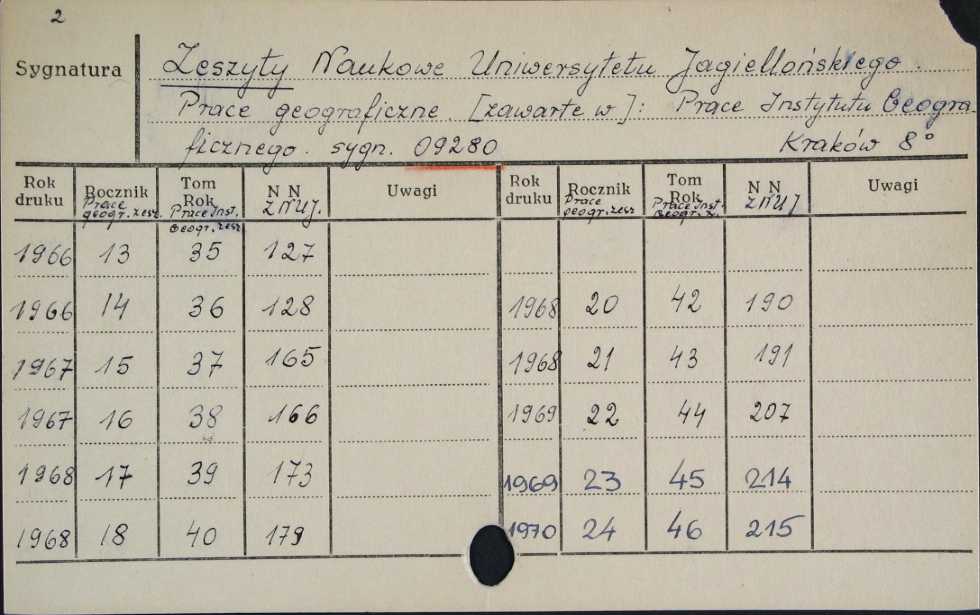 2
Sygnatura
Zeszyty Naukowe Uniwersytetu Jagiellońskiego.
Prace geograficzne. [zawarte w]: Prace Instytutu Geogra
ficznego. sygn. 09280 Kraków 8°
Rok druku Rocznik Prace geogr. zesz. Tom Rok Prace Inst. Geogr. zesz N N ZNUJ. Uwagi Rok druku Rocznik Prace geogr. zesz Tom Rok Prace Inst. Geogr. z. N N ZNUJ Uwagi
1966 13 35 127
1966 14 36 128 1968 20 42 190
1967 15 37 165 1968 21 43 191
1967 16 38 166 1969 22 44 207
1968 17 39 173 1969 23 45 214
1968 18 40 179 1970 24 46 215